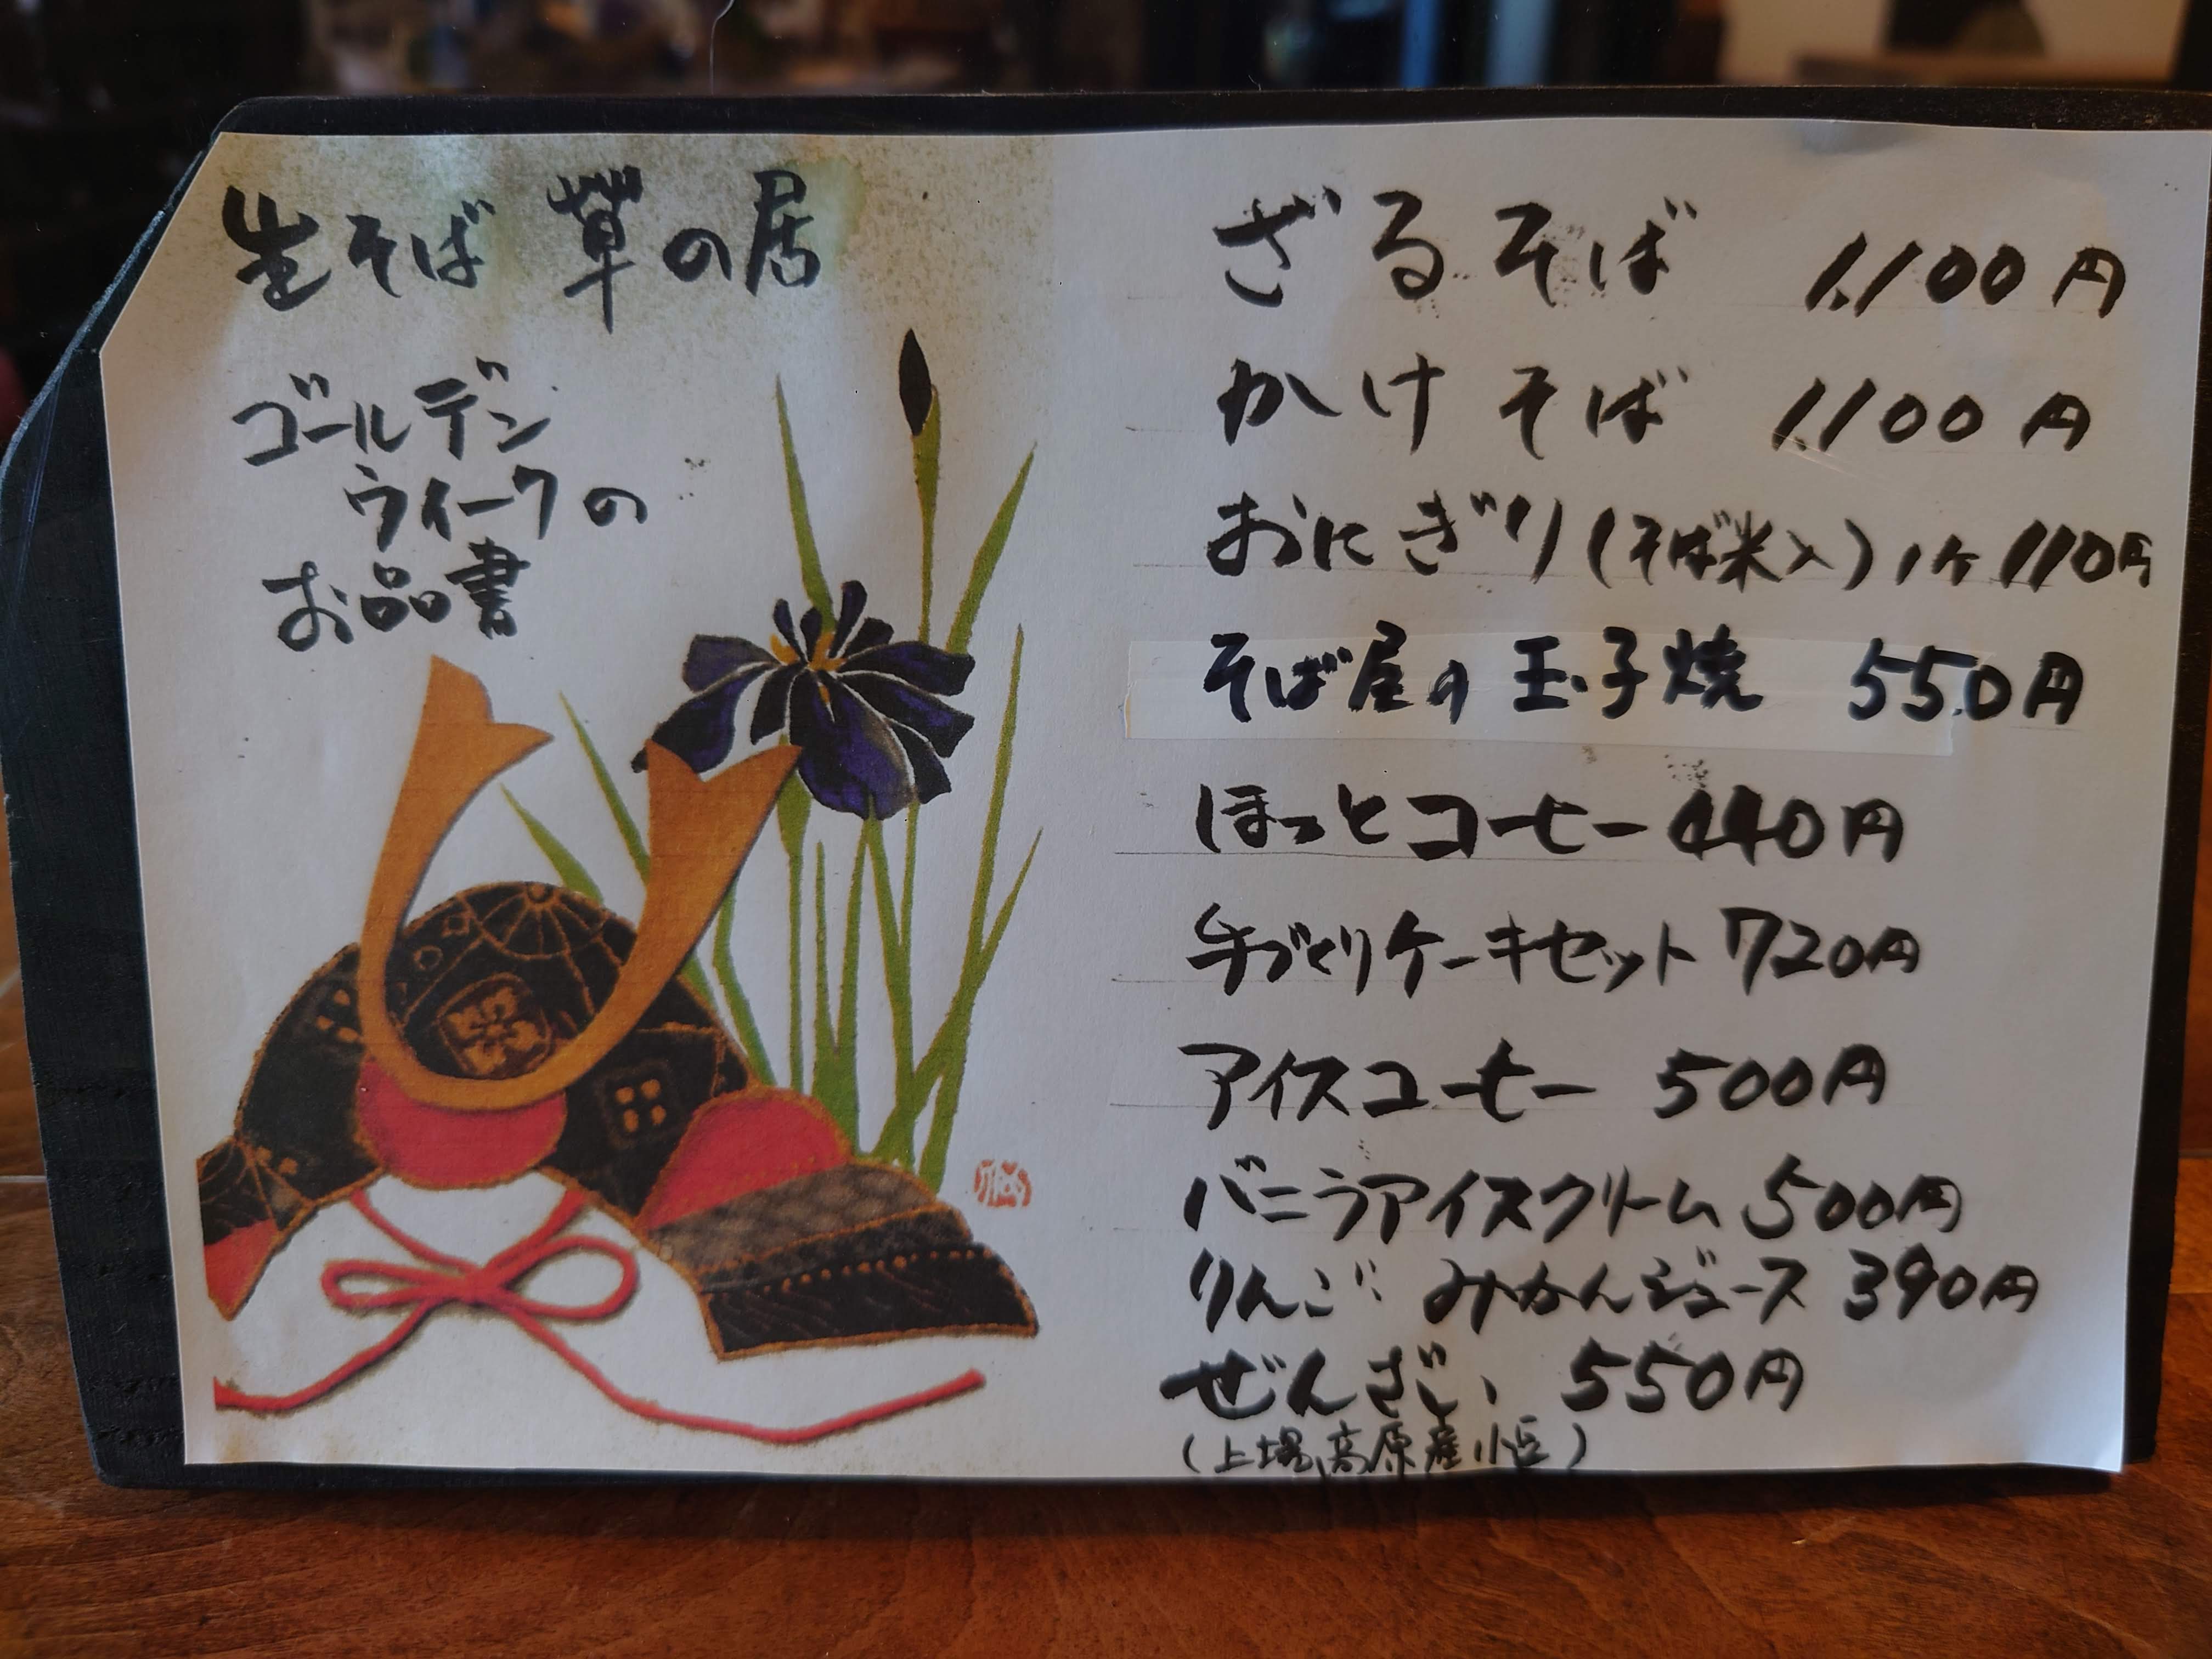 生そば 草の居
ゴールデン
ウィークの
お品書
ざるそば 1,100円
かけそば 1,100円
おにぎり(そば米入)1ケ110円
そば屋の玉子焼 550円
ほっとコーヒー440円
手づくりケーキセット720円
アイスコーヒー 500円
バニラアイスクリーム 500円
りんご みかんジュース 390円
ぜんざい 550円
(上場高原産小豆)